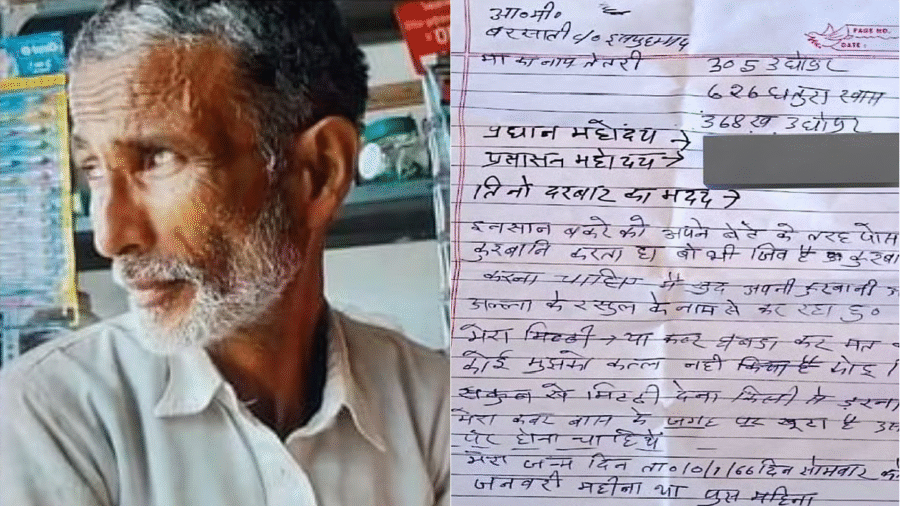 आ०मी०
बरसाती
PAGE NO.
DATE:
मा का नाम तेतरी
305 उधोपुर
626 धतुरा खास
368ख उधोपुर
प्रधान महोदय →
प्रसासन महोदय →
तिनो दरबार का मदद →
इनसान बकरे को अपने बेटे के तरह पोस
कुरबानि करता है। वो भी जिव है कुरबा
करना चाहिए मै खुद अपनी कुरबानी
अल्ला के रसुल के नाम से कर रहा हु०
मेरा मिटटी या कबर घबडा कर मत
कोई मुझको कत्ल नही किया है
सकुन से मिटटी देना किसी से डरना
मेरा कबर बास के जगह पर खुटा है उस
पर होना चाहिये
मेरा जन्म दिन ता० 10/1/66 दिन सोमवार को
जनवरी महीना था पुस महिना